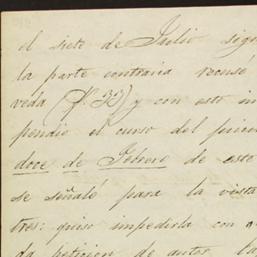 el siete de Julio sigu
la parte contraria recusó
veda (f. 32) y con esto in
pendió el curso del juici
doce de Febrero de este
se señaló para la vista
tres: quiso impedirla con
da peticion de autos la